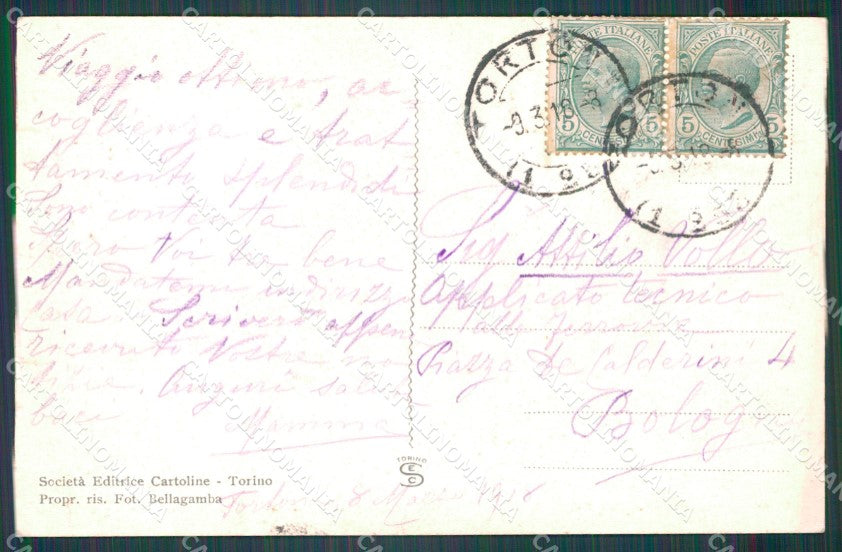 Viaggio ottimo, ac-
coglienza e trat
tamento splendidi
Sono contenta
Spero Voi tre bene
Mandatemi indirizzo
Casa Scriverò appena
ricevuto Vostre no
tizie. Auguri saluti
baci
Mamma
Società Editrice Cartoline - Torino
Propr. ris. Fot. Bellagamba
Tortona 8 Marzo 1918
TORINO
SEC
POSTE ITALIANE
POSTE ITALIANE
5 CENTESIMI 5
5 CENTESIMI 5
TORTONA
-9.3.18
Sig Attilio Vollo
Applicato tecnico
alle Ferrovie
Piazza de Calderini 4
Bologna
CARTOLINOMANIA